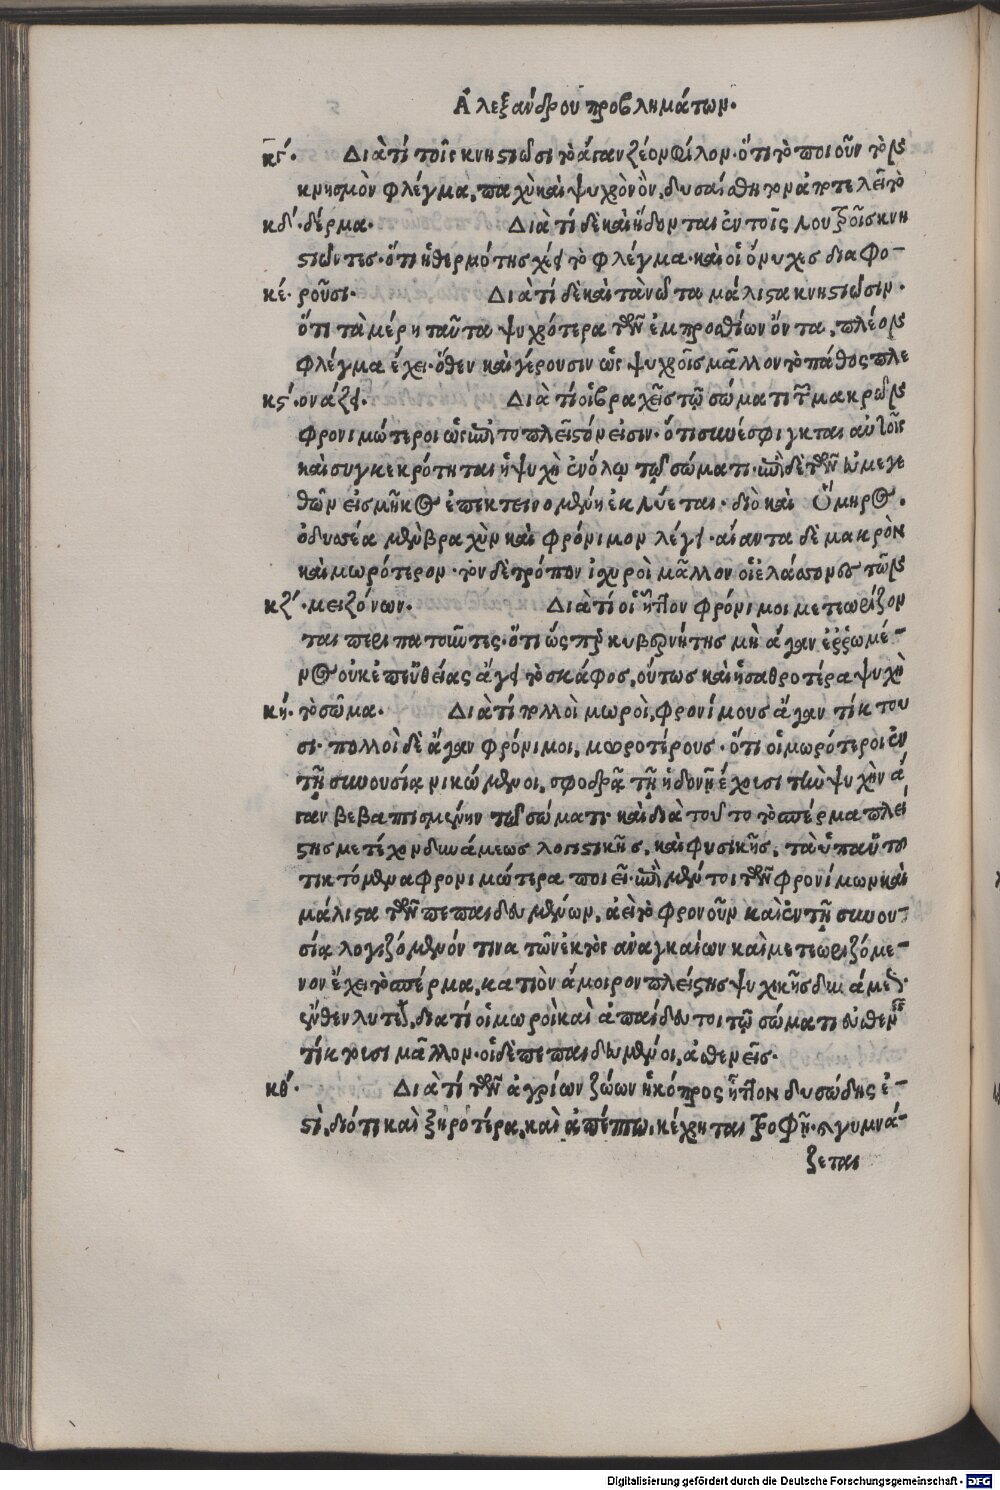 Ἀλεξάνδρου προβλημάτων.
κγ΄. Διὰ τί τοῖς κνηστιῶσι τὸ ἄγαν ζέον φίλον· ὅτι τὸ ποιοῦν τὸν
κνησμὸν φλέγμα, παχὺ καὶ ψυχρὸν ὂν, δυσαίσθητον ἀποτελεῖ τὸ
κδ΄. δέρμα. Διὰ τί δὲ καὶ ἥδονται ἐν τοῖς λουτροῖς κνη
στιῶντες· ὅτι ἡ θερμότης χεῖ τὸ φλέγμα· καὶ οἱ ὄνυχες διαφο-
κέ. ροῦσι. Διὰ τί δὲ καὶ τὰ νῶτα μάλιστα κνηστιῶσιν.
ὅτι τὰ μέρη ταῦτα ψυχρότερα τῶν ἐμπροσθίων ὄντα, πλέον
φλέγμα ἔχει· ὅθεν καὶ γέρουσιν ὡς ψυχροῖς μᾶλλον τὸ πάθος πλε
κϛ΄. ονάζει. Διὰ τί οἱ βραχεῖς τῷ σώματι τῶν μακρῶν
φρονιμώτεροι ὡς ἐπὶ τὸ πλεῖστόν εἰσιν· ὅτι συνέσφιγκται αὐτοῖς
καὶ συγκεκρότηται ἡ ψυχὴ ἐν ὅλῳ τῷ σώματι· ἐπὶ δὲ τῶν εὐμεγε
θῶν εἰς μῆκος ἐπεκτεινομένη ἐκλύεται· διὸ καὶ Ὅμηρος.
ὀδυσσέα μὲν βραχὺν καὶ φρόνιμον λέγει· αἴαντα δὲ μακρὸν
καὶ μωρότερον· τὸν δὲ τρόπον ἰσχυροὶ μᾶλλον οἱ ἐλάσσονες τῶν
κζ΄. μειζόνων. Διὰ τί οἱ ἧττον φρόνιμοι μετεωρίζον
ται περιπατοῦντες· ὅτι ὥσπερ κυβερνήτης μὴ ἄγαν ἐῤῥωμέ-
νος οὐκ ἐπευθείας ἄγει τὸ σκάφος, οὕτως καὶ ἡ σαθροτέρα ψυχὴ
κή. τὸ σῶμα. Διὰ τί πολλοὶ μωροὶ, φρονίμους ἄγαν τίκτου
σι· πολλοὶ δὲ ἄγαν φρόνιμοι, μωροτέρους· ὅτι οἱ μωρότεροι ἐν
τῇ συνουσίᾳ νικώμενοι, σφοδρᾷ τῇ ἡδονῇ ἔχουσι τὴν ψυχὴν ἄ
γαν βεβαπτισμένην τῷ σώματι· καὶ διὰ τοῦτο τὸ σπέρμα πλεί
στης μετέχον δυνάμεως λογιστικῆς, καὶ φυσικῆς, τὰ ὑπ' αὐτοῦ
τικτόμενα φρονιμώτερα ποιεῖ· ἐπὶ μέν τοι τῶν φρονίμων καὶ
μάλιστα τῶν πεπαιδευμένων, ἀεὶ τὸ φρονοῦν καὶ ἐν τῇ συνου-
σίᾳ λογιζόμενόν τινα τῶν ἐκτὸς ἀναγκαίων καὶ μετεωριζόμε-
νον ἔχει τὸ σπέρμα, κατιὸν ἄμοιρον πλείστης ψυχικῆς δυνάμεως.
ἔνθεν λυτέον, διατί οἱ μωροὶ καὶ ἀπαίδευτοι τῷ σώματι εὐσθενεῖς
τίκτουσι μᾶλλον· οἱ δὲ πεπαιδευμένοι, ἀσθενεῖς.
κθ΄. Διὰ τί τῶν ἀγρίων ζώων ἡ κόπρος ἧττον δυσώδης ἐ-
στὶ, διότι καὶ ξηροτέρᾳ, καὶ ἀπέπτῳ, κέχρηται τροφῇ· καὶ γυμνά-
ζεται
Digitalisierung gefördert durch die Deutsche Forschungsgemeinschaft - DFG